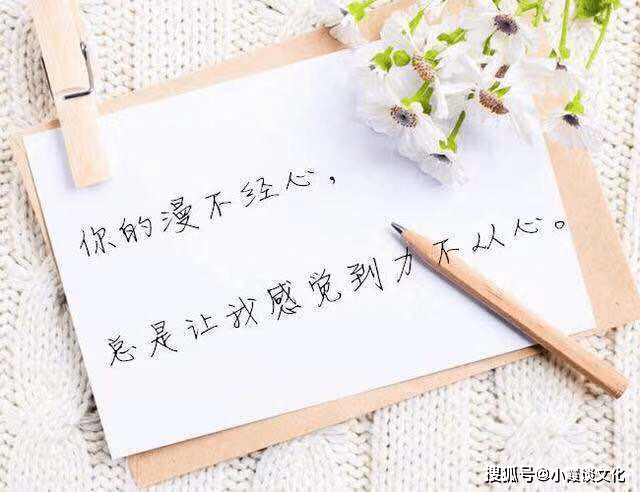 你的漫不经心，
总是让我感觉到力不从心。
搜狐号@小霞谈文化